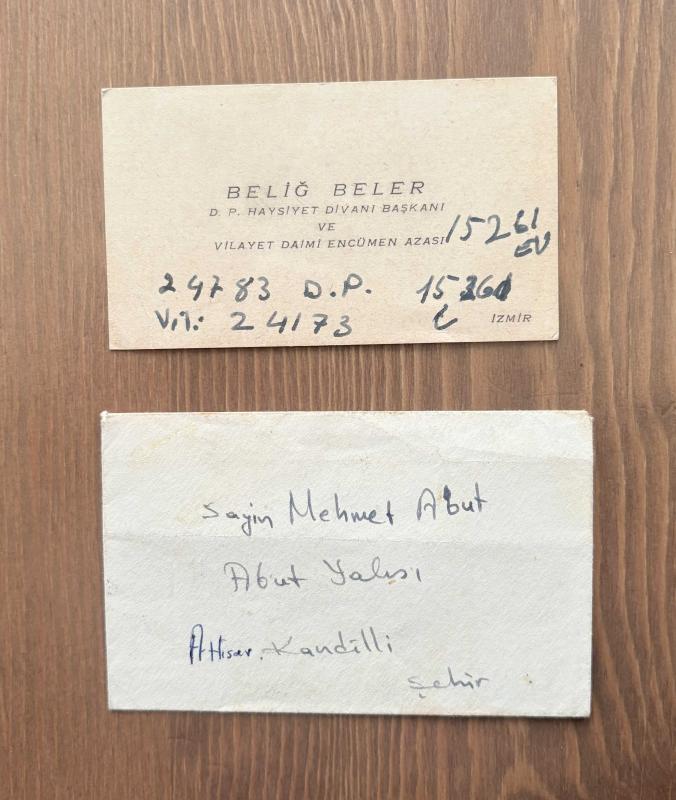 BELİĞ BELER
D. P. HAYSİYET DİVANI BAŞKANI
VE
VİLAYET DAİMİ ENCÜMEN AZASI
15261
EV
24783 D.P. 15261
V.İ: 24173
İZMİR
Sayın Mehmet Abut
Abut Yalısı
A. Hisar. Kandilli
Şehir